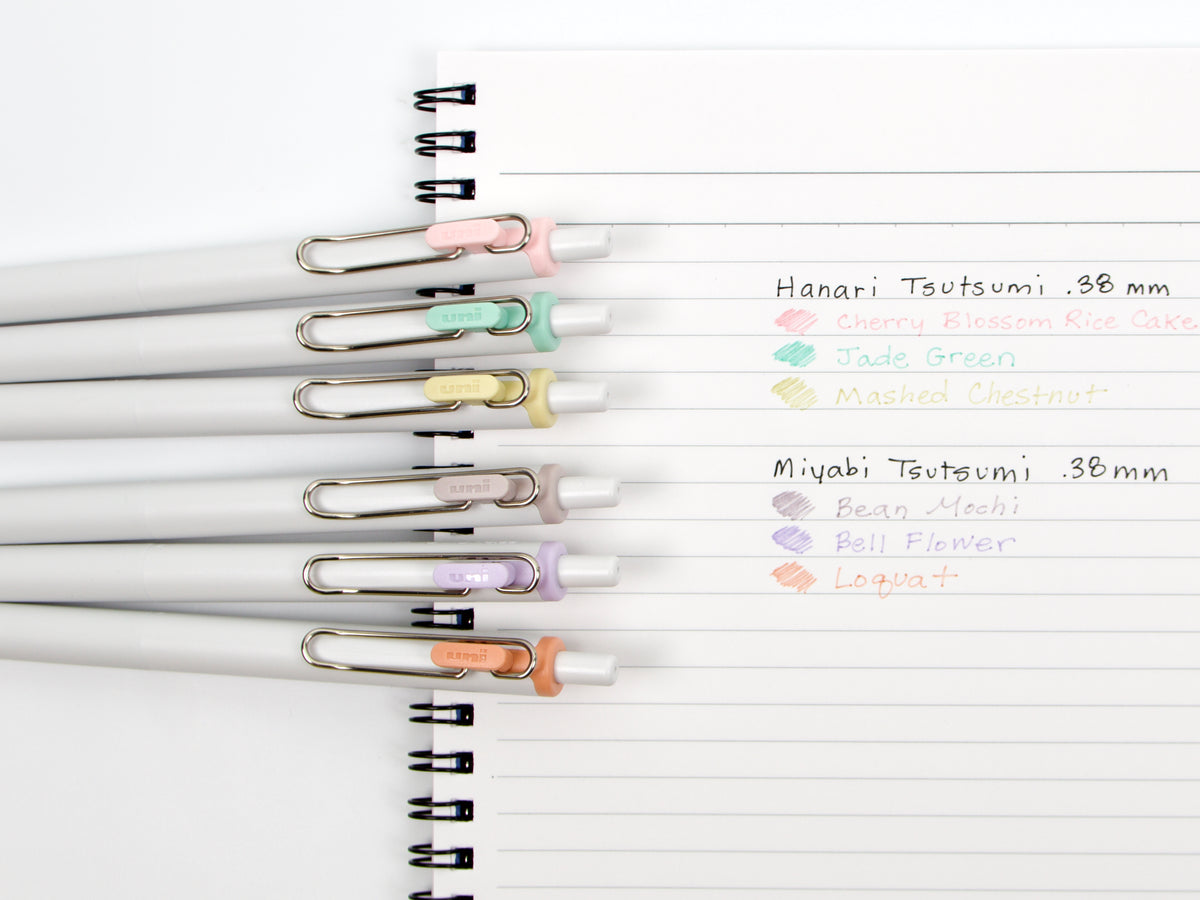 uni
uni
uni
uni
uni
uni
Hanari Tsutsumi .38 mm
Cherry Blossom Rice Cake
Jade Green
Mashed Chestnut
Miyabi Tsutsumi .38 mm
Bean Mochi
Bell Flower
Loquat